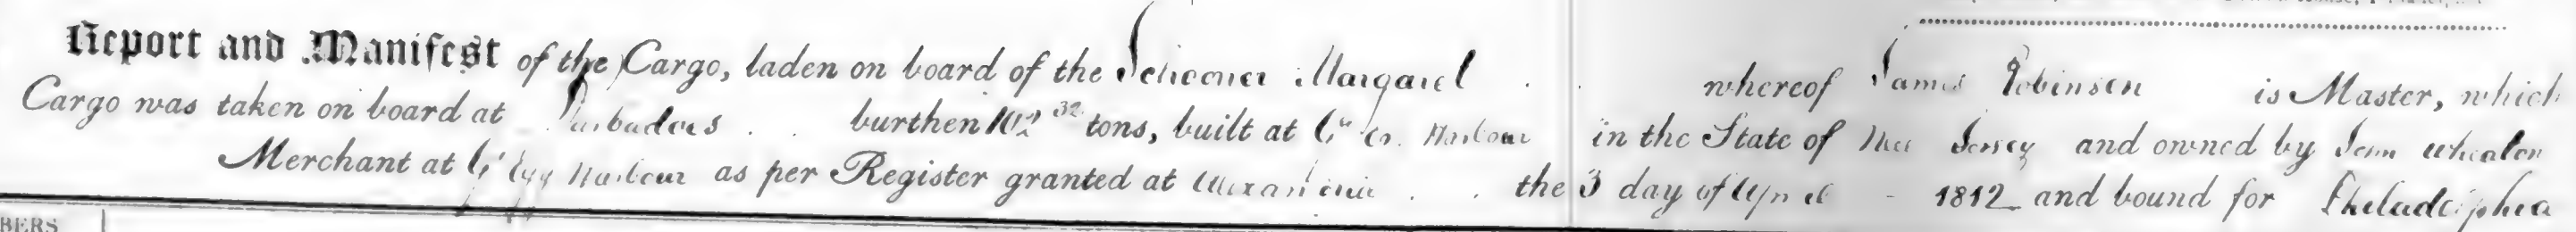 Report and Manifest of the Cargo, laden on board of the Schooner Margaret whereof James Robinson is Master, which
Cargo was taken on board at Barbadoes burthen 102 32 tons, built at Gt Egg Harbour in the State of New Jersey and owned by John Whealon
Merchant at Gt Egg Harbour as per Register granted at Alexandria the 3 day of April - 1812 and bound for Philadelphia
BERS